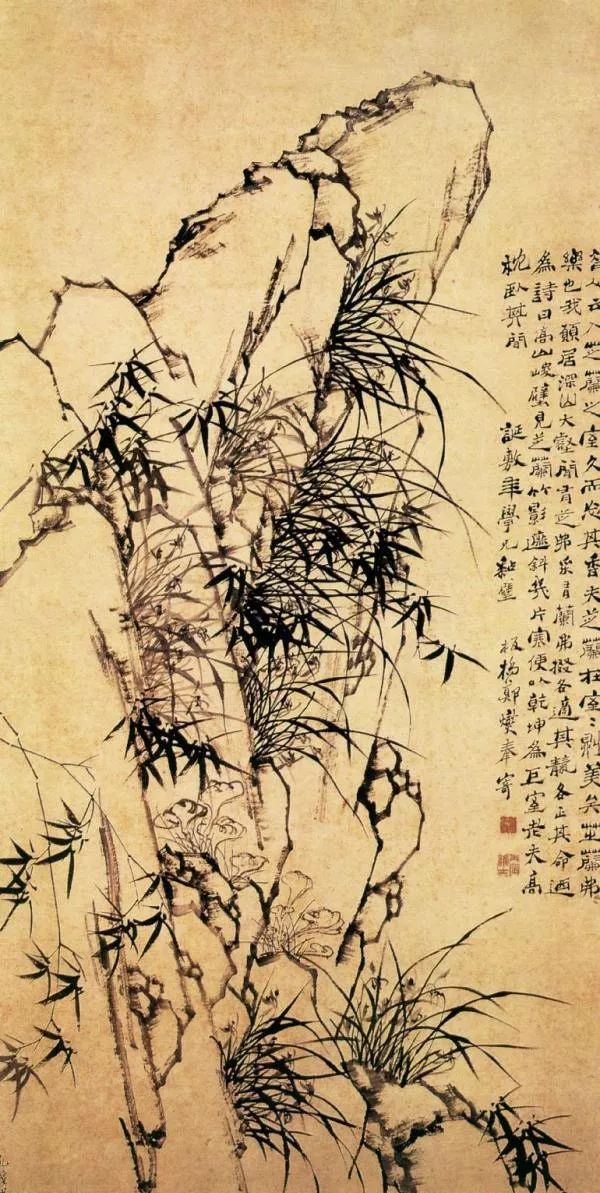 人云入芝蘭之室久而忘其香夫芝蘭在室〻則美矣芝蘭弗
樂也我願居深山大壑間有芝弗采有蘭弗掇各適其各正其命迺
為詩曰高山峻壁見芝蘭竹影遮斜幾片寒便以乾坤為巨室老夫高
枕臥其間
誕敷年學兄黏壁
板橋鄭燮奉寄